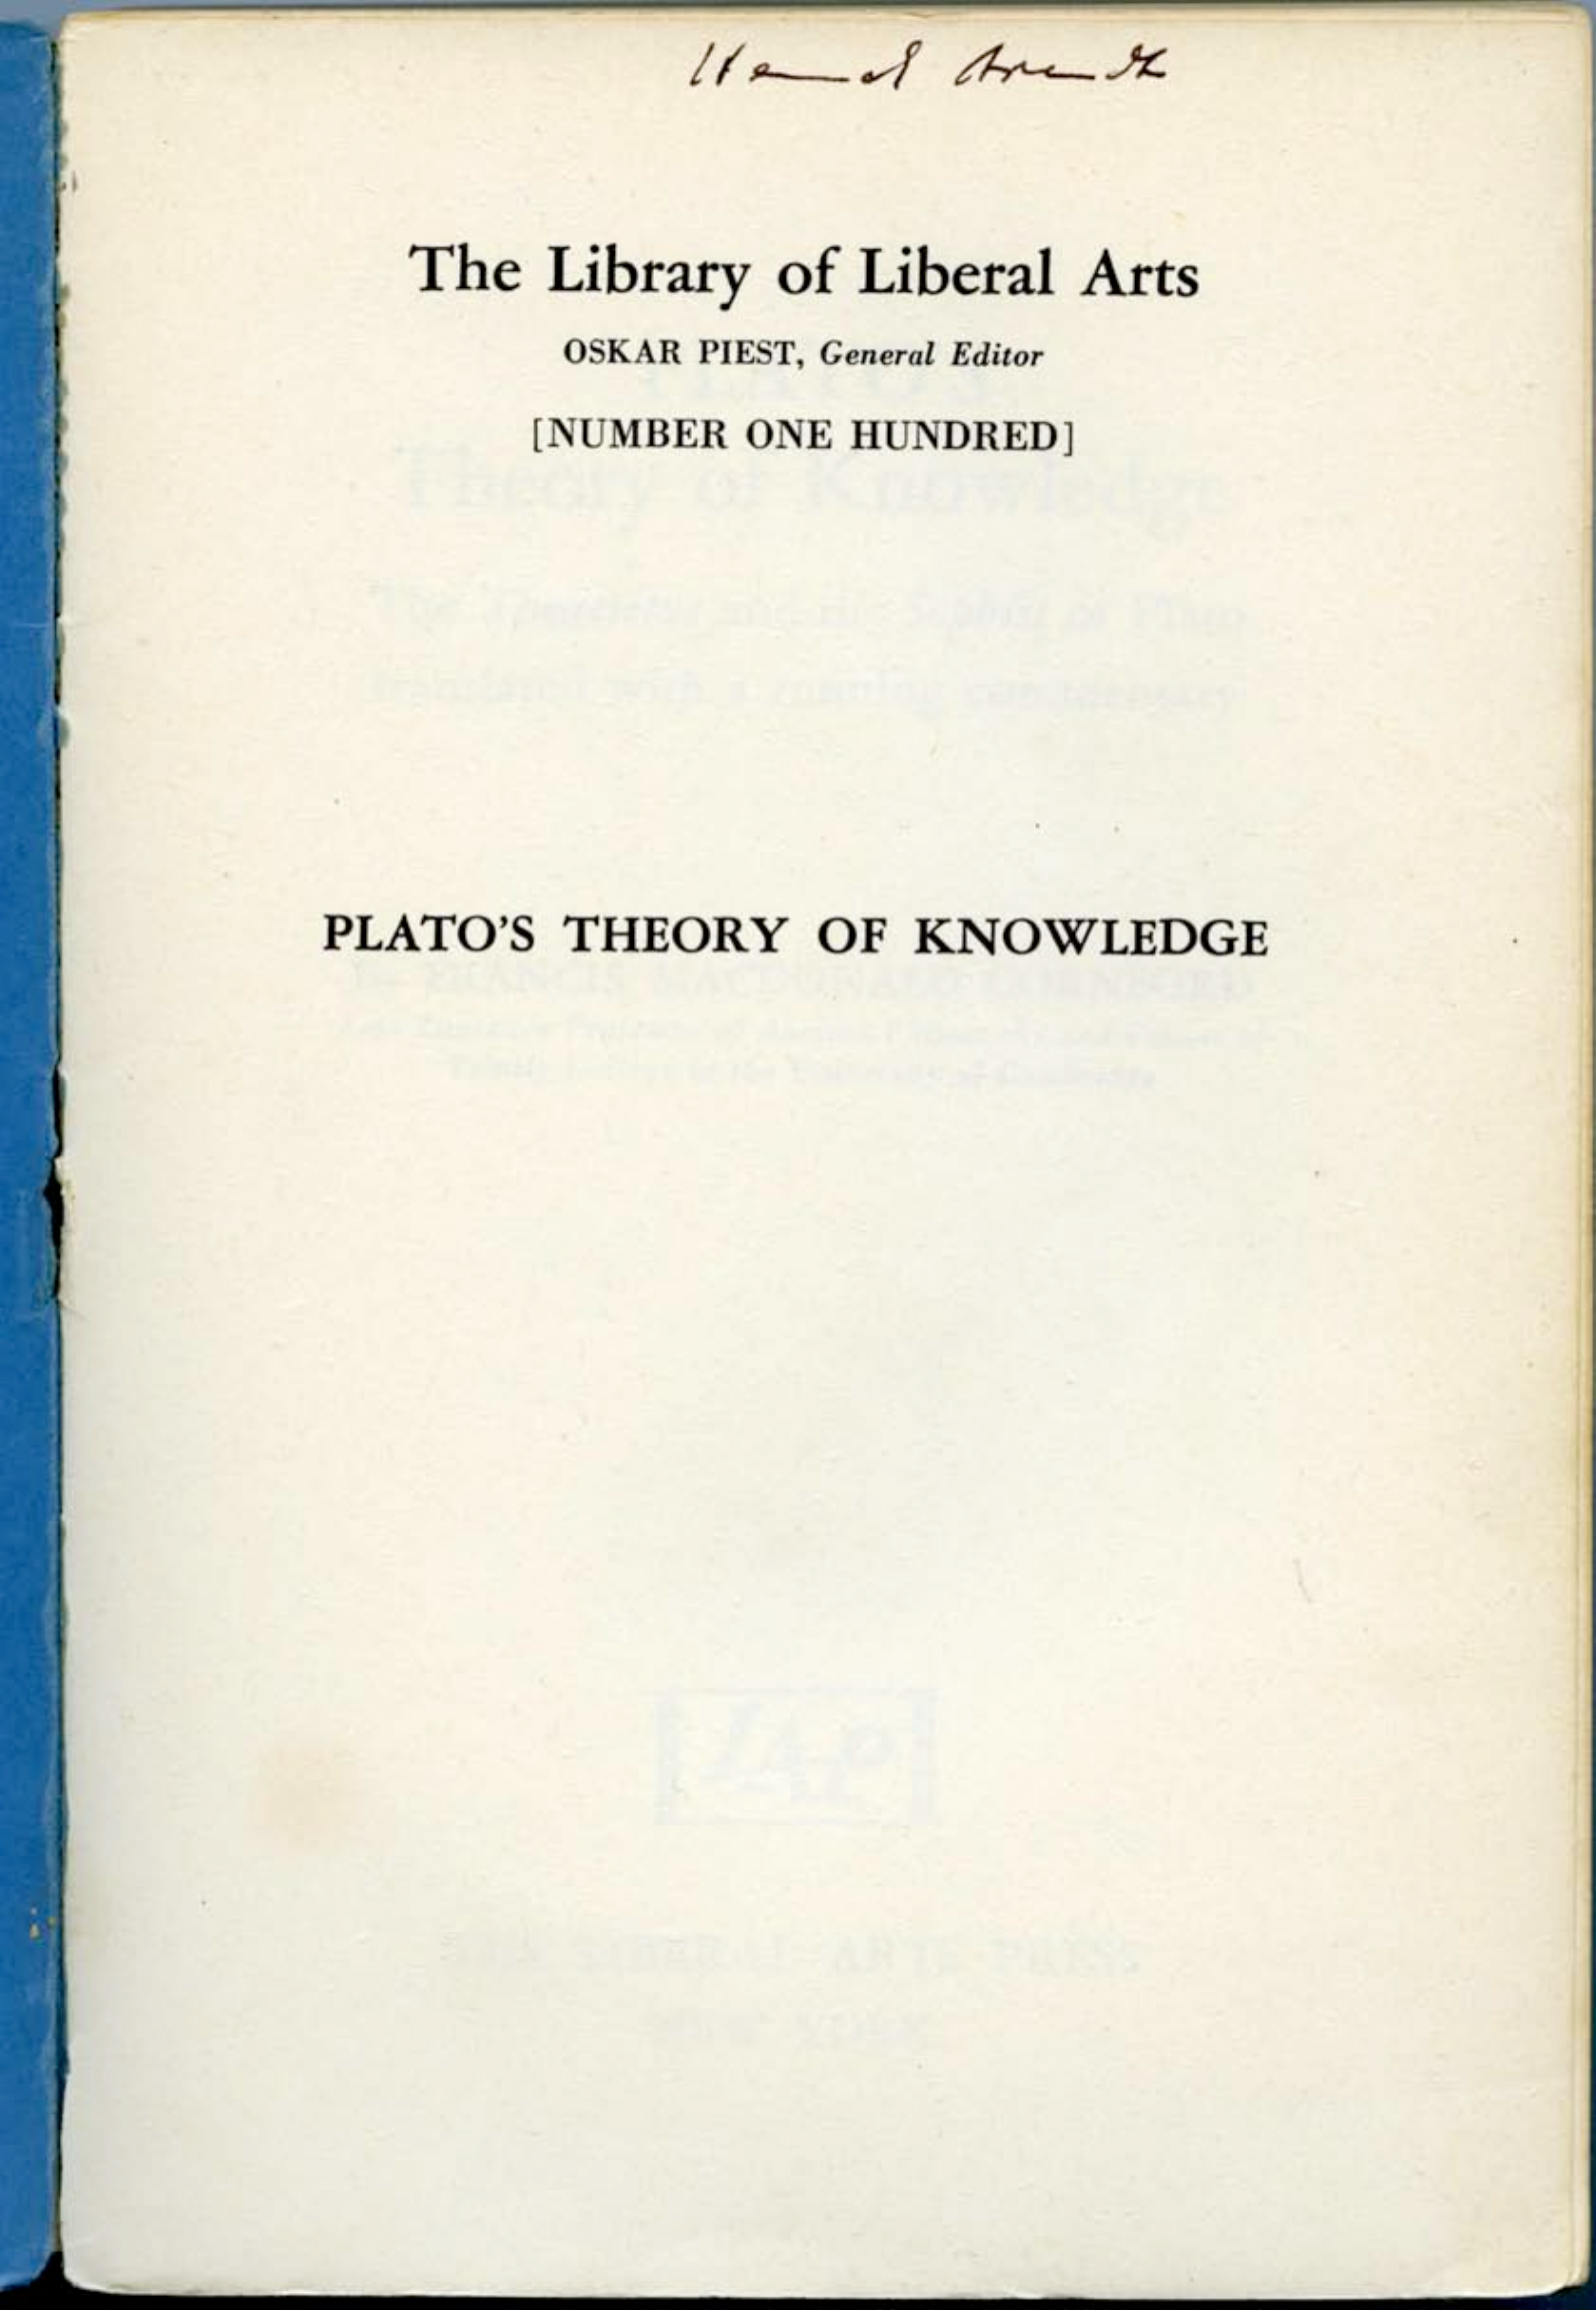 Hannah Arendt
The Library of Liberal Arts
OSKAR PIEST, General Editor
[NUMBER ONE HUNDRED]
Theory of Knowledge
PLATO'S THEORY OF KNOWLEDGE